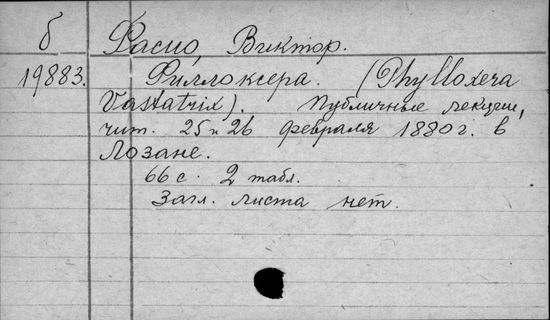 б Фасио, Виктор.
19883. Филлоксера. (Phylloxera
Vastatrix). Публичные лекции,
чит. 25 и 26 февраля 1880 г. в
Лозане.
66 с. 2 табл.
Загл. листа нет.